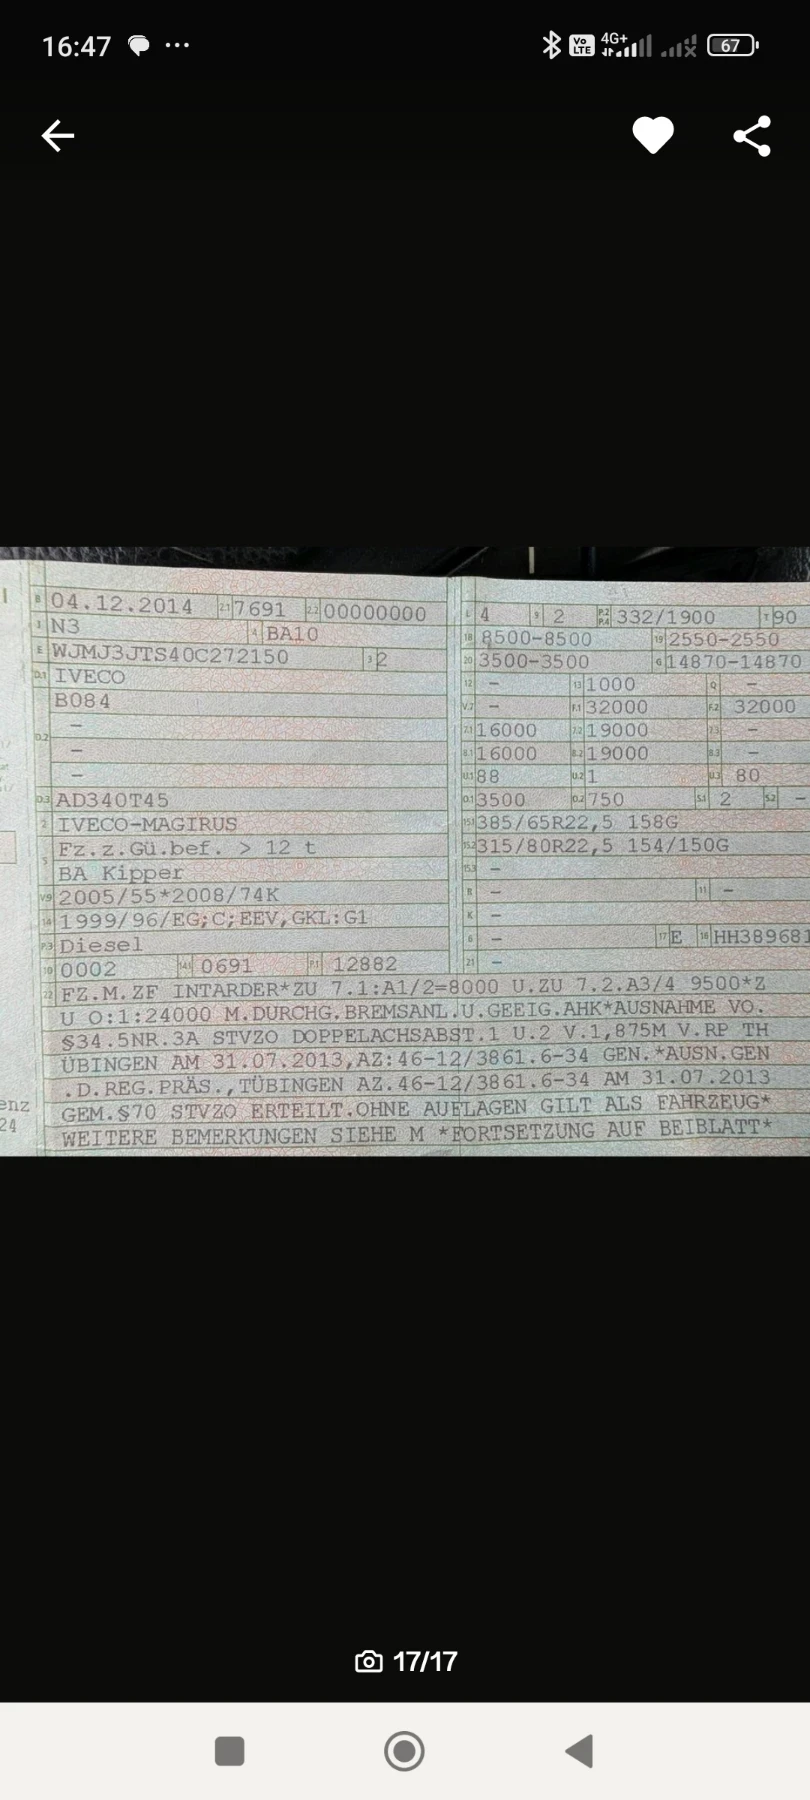 16:47 ... Vo LTE 4G+ 67
B 04.12.2014 2.1 7691 2.2 00000000
J N3 4 BA10
E WJMJ3JTS40C272150 3 2
D.1 IVECO
B084
D.2 -
-
-
D.3 AD340T45
2 IVECO-MAGIRUS
5 Fz.z.Gü.bef. > 12 t
BA Kipper
V9 2005/55*2008/74K
14 1999/96/EG;C;EEV,GKL:G1
P.3 Diesel
10 0002 14.1 0691 P.1 12882
L 4 9 2 P.2 P.4 332/1900 T 90
18 8500-8500 19 2550-2550
20 3500-3500 G 14870-14870
12 - 13 1000 Q -
V.7 - F.1 32000 F.2 32000
7.1 16000 7.2 19000 7.3 -
8.1 16000 8.2 19000 8.3 -
U.1 88 U.2 1 U.3 80
O.1 3500 O.2 750 S.1 2 S.2 -
15.1 385/65R22,5 158G
15.2 315/80R22,5 154/150G
15.3 -
R - 11 -
K -
6 - 17 E 16 HH389681
21 -
22 FZ.M.ZF INTARDER*ZU 7.1:A1/2=8000 U.ZU 7.2.A3/4 9500*Z
U O:1:24000 M.DURCHG.BREMSANL.U.GEEIG.AHK*AUSNAHME VO.
§34.5NR.3A STVZO DOPPELACHSABST.1 U.2 V.1,875M V.RP TH
ÜBINGEN AM 31.07.2013,AZ:46-12/3861.6-34 GEN.*AUSN.GEN
.D.REG.PRÄS.,TÜBINGEN AZ.46-12/3861.6-34 AM 31.07.2013
enz GEM.§70 STVZO ERTEILT.OHNE AUFLAGEN GILT ALS FAHRZEUG*
24 WEITERE BEMERKUNGEN SIEHE M *FORTSETZUNG AUF BEIBLATT*
17/17